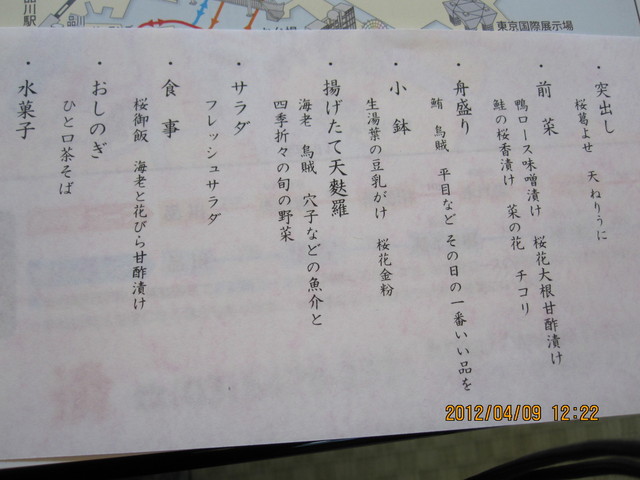 ・突出し
桜葛よせ 天 ねりうに
・前菜
鴨ロース味噌漬け 桜花大根甘酢漬け
鮭の桜香漬け 菜の花 チコリ
・舟盛り
鮪 烏賊 平目など その日の一番いい品を
・小鉢
生湯葉の豆乳がけ 桜花金粉
・揚げたて天麩羅
海老 烏賊 穴子などの魚介と
四季折々の旬の野菜
・サラダ
フレッシュサラダ
・食事
桜御飯 海老と花びら甘酢漬け
・おしのぎ
ひと口茶そば
・水菓子
品川駅
品川
東京国際展示場
2012/04/09 12:22